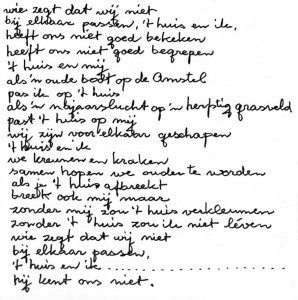 wie zegt dat wij niet
bij elkaar passen, 't huis en ik,
heeft ons niet goed bekeken
heeft ons niet goed begrepen
't huis en mij
als 'n oude boot op de Amstel
pas ik op 't huis
als 'n najaarslucht op 'n herfstig grasveld
past 't huis op mij
wij zijn voor elkaar geschapen
't huis en ik
we kreunen en kraken
samen hopen we ouder te worden
als je 't huis afbreekt
breek ook mij maar
zonder mij zou 't huis verkleumen
zonder 't huis zou ik niet léven
wie zegt dat wij niet
bij elkaar passen,
't huis en ik..............................
hij kent ons niet.